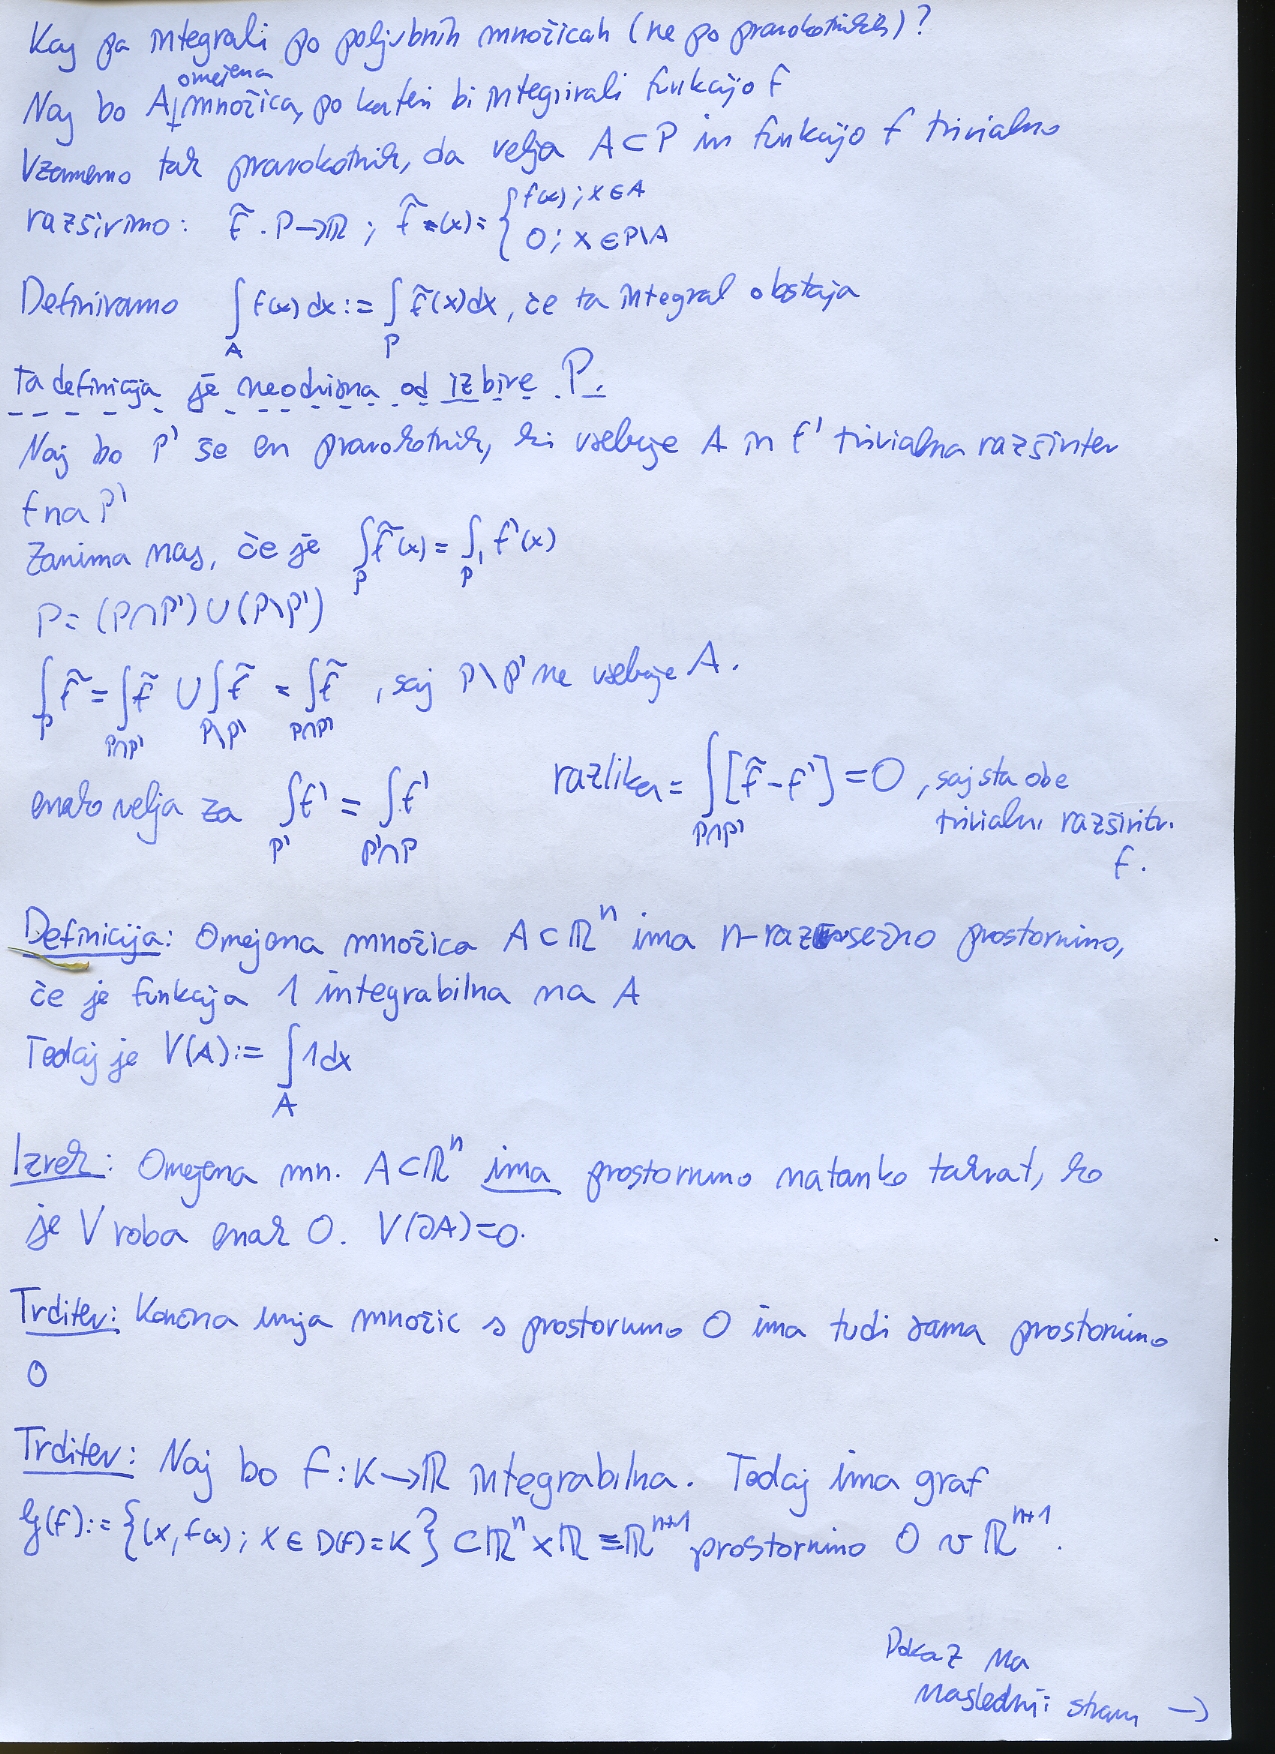 Kaj pa integrali po poljubnih množicah (ne po pravokotnikih)?
omejena
Naj bo A množica, po kateri bi integrirali funkcijo f
Vzamemo tak pravokotnik, da velja A ⊂ P in funkcijo f trivialno
razširimo: f̃: P → ℝ ; f̃(x) = { f(x) ; x ∈ A
0 ; x ∈ P\A
Definiramo ∫_A f(x) dx := ∫_P f̃(x) dx, če ta integral obstaja
ta definicija je neodvisna od izbire P.
Naj bo P' še en pravokotnik, ki vsebuje A in f' trivialna razširitev
f na P'
Zanima nas, če je ∫_P f̃(x) = ∫_P' f'(x)
P = (P∩P') ∪ (P\P')
∫_P f̃ = ∫_{P∩P'} f̃ ∪ ∫_{P\P'} f̃ = ∫_{P∩P'} f̃ , saj P\P' ne vsebuje A.
enako velja za ∫_P' f' = ∫_{P'∩P} f'
razlika = ∫_{P∩P'} [f̃ - f'] = 0 , saj sta obe
trivialni razširitvi
f.
Definicija: Omejena množica A ⊂ ℝⁿ ima n-razsežno prostornino,
če je funkcija 1 integrabilna na A
Tedaj je V(A) := ∫_A 1 dx
Izrek: Omejena mn. A ⊂ ℝⁿ ima prostornino natanko takrat, ko
je V roba enak 0. V(∂A) = 0.
Trditev: Končna unija množic s prostornino 0 ima tudi sama prostornino
0
Trditev: Naj bo f: K → ℝ integrabilna. Tedaj ima graf
G(f) := {(x, f(x) ; x ∈ D(f) = K} ⊂ ℝⁿ × ℝ ≡ ℝⁿ⁺¹ prostornino 0 v ℝⁿ⁺¹.
Dokaz na
naslednji strani →